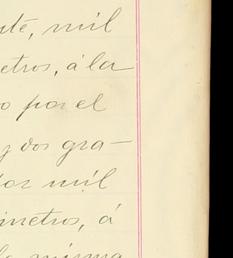 nte, mil
etros, á la
o por el
y dos gra-
dos mil
imetros, á
la misma